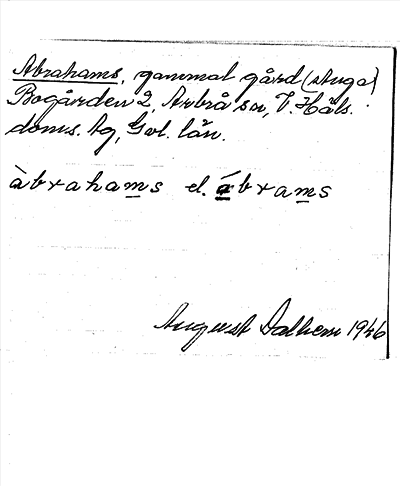 Abrahams, gammal gård (stuga)
Bogården 2, Arbrå sn, V. Häls.
doms. Ag, Gvl. län.
àbrahams el. ábrams
August Dalhem 1946